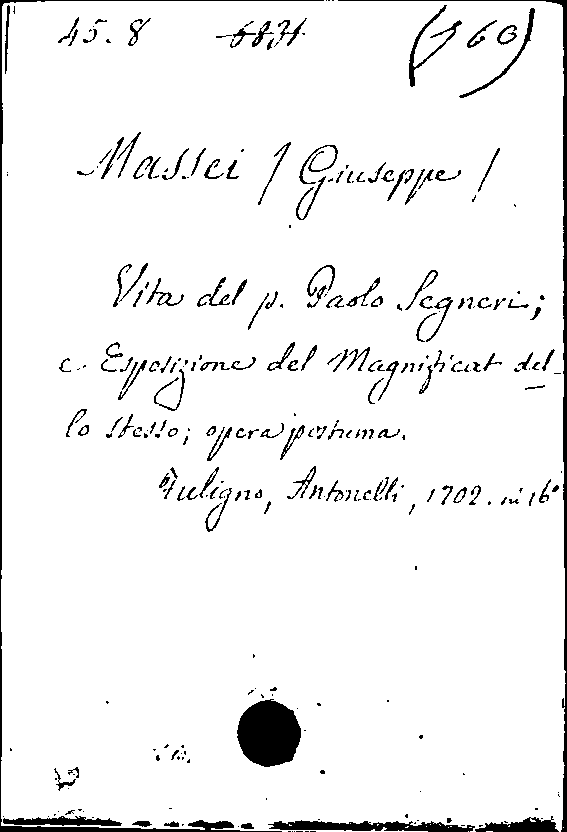 45. 8 6831 (360)
Massei / Giuseppe /
Vita del p. Paolo Segneri;
e Esposizione del Magnificat del-
lo stesso; opera postuma.
Fuligno, Antonelli, 1702. in 16°